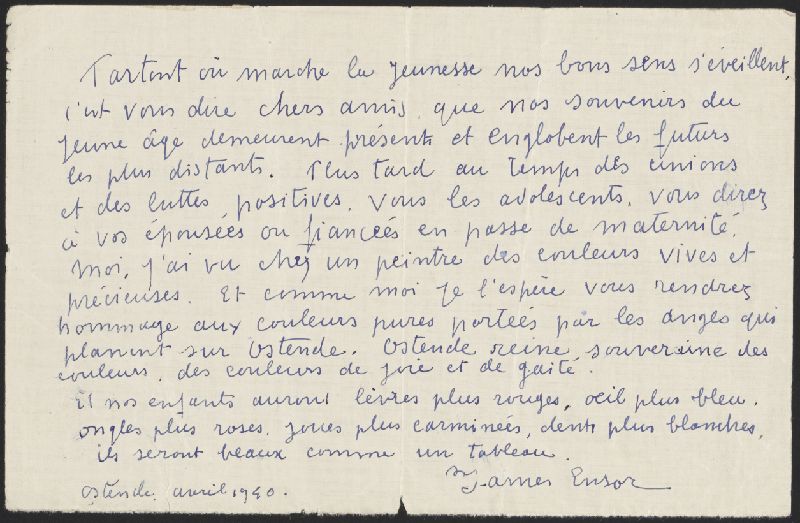 Partout où marche la jeunesse nos bons sens s'éveillent,
c'est vous dire chers amis, que nos souvenirs du
jeune âge demeurent présents et englobent les futurs
les plus distants. Plus tard au temps des unions
et des luttes positives. Vous les adolescents, vous direz
à vos épousées ou fiancées en passe de maternité,
moi, j'ai vu chez un peintre des couleurs vives et
précieuses. Et comme moi je l'espère vous rendrez
hommage aux couleurs pures portées par les anges qui
planent sur Ostende. Ostende reine souveraine des
couleurs, des couleurs de joie et de gaité.
Et nos enfants auront lèvres plus rouges, oeil plus bleu,
ongles plus roses, joues plus carminées, dents plus blanches,
ils seront beaux comme un tableau.
James Ensor
Ostende avril 1940.